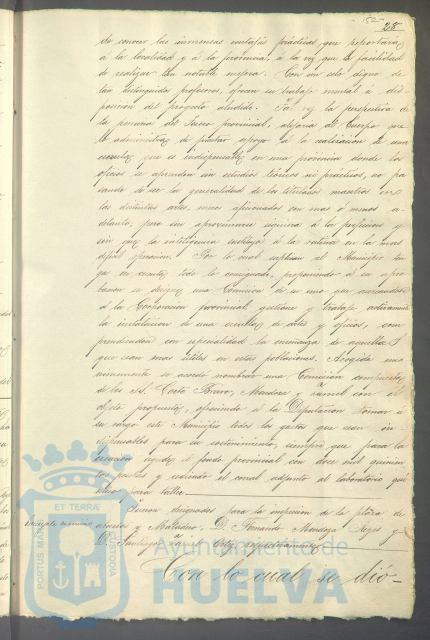 28
de conocer las inmensas ventajas prácticas que reportaría
á la localidad y á la provincia, á la vez que la facilidad
de realizar tan notable mejora. Con un celo digno de
tan distinguidos profesores, ofrecen su trabajo mural á dis-
posicion del proyecto aludido. Tal vez la perspectiva de
la penuria del Tesoro provincial, alejaria al Cuerpo que
lo administra, de prestar apoyo á la realizacion de una
escuela, que es indispensable en una provincia donde los
oficios se aprenden sin estudios técnicos ni prácticos, no pa-
sando de ser la generalidad de los titulados maestros en
las distintas artes, meros aficionados con mas ó menos a-
delanto, pero sin aproximarse siquiera á la perfeccion y
sin que la inteligencia sustituya á la rutina en la mas
dificil operacion. Por lo cual suplican al Municipio ten-
ga en cuenta todo lo consignado, proponiendo á su apro-
bacion se designe una Comision de su seno que acercandose
á la Corporacion provincial gestione y trabaje activamente
la instalacion de una escuela de artes y oficios, com-
prendiendo con especialidad la enseñanza de aquellas
que sean mas útiles en estas poblaciones. Acogida una-
nimamente se acordó nombrar una Comision compuesta
de los SS. Corto Bravo, Mendoza y con el
objeto propuesto, ofreciendo á la Diputacion tomar á
su cargo este Municipio todos los gastos que sean in-
dispensables para su sostenimiento, siempre que para la
creacion ayude el fondo provincial con doce mil quinien-
tas pesetas y cediendo el corral adjunto al laboratorio quí-
mico para taller.
Fueron designados para la inspeccion de la plaza de
y Matadero, D. Fernando Mendoza y
D. Santiago respectivamente
Con lo cual se dió-
PORTUS MARIS ET TERRÆ CUSTODIA
Ayuntamiento de
HUELVA